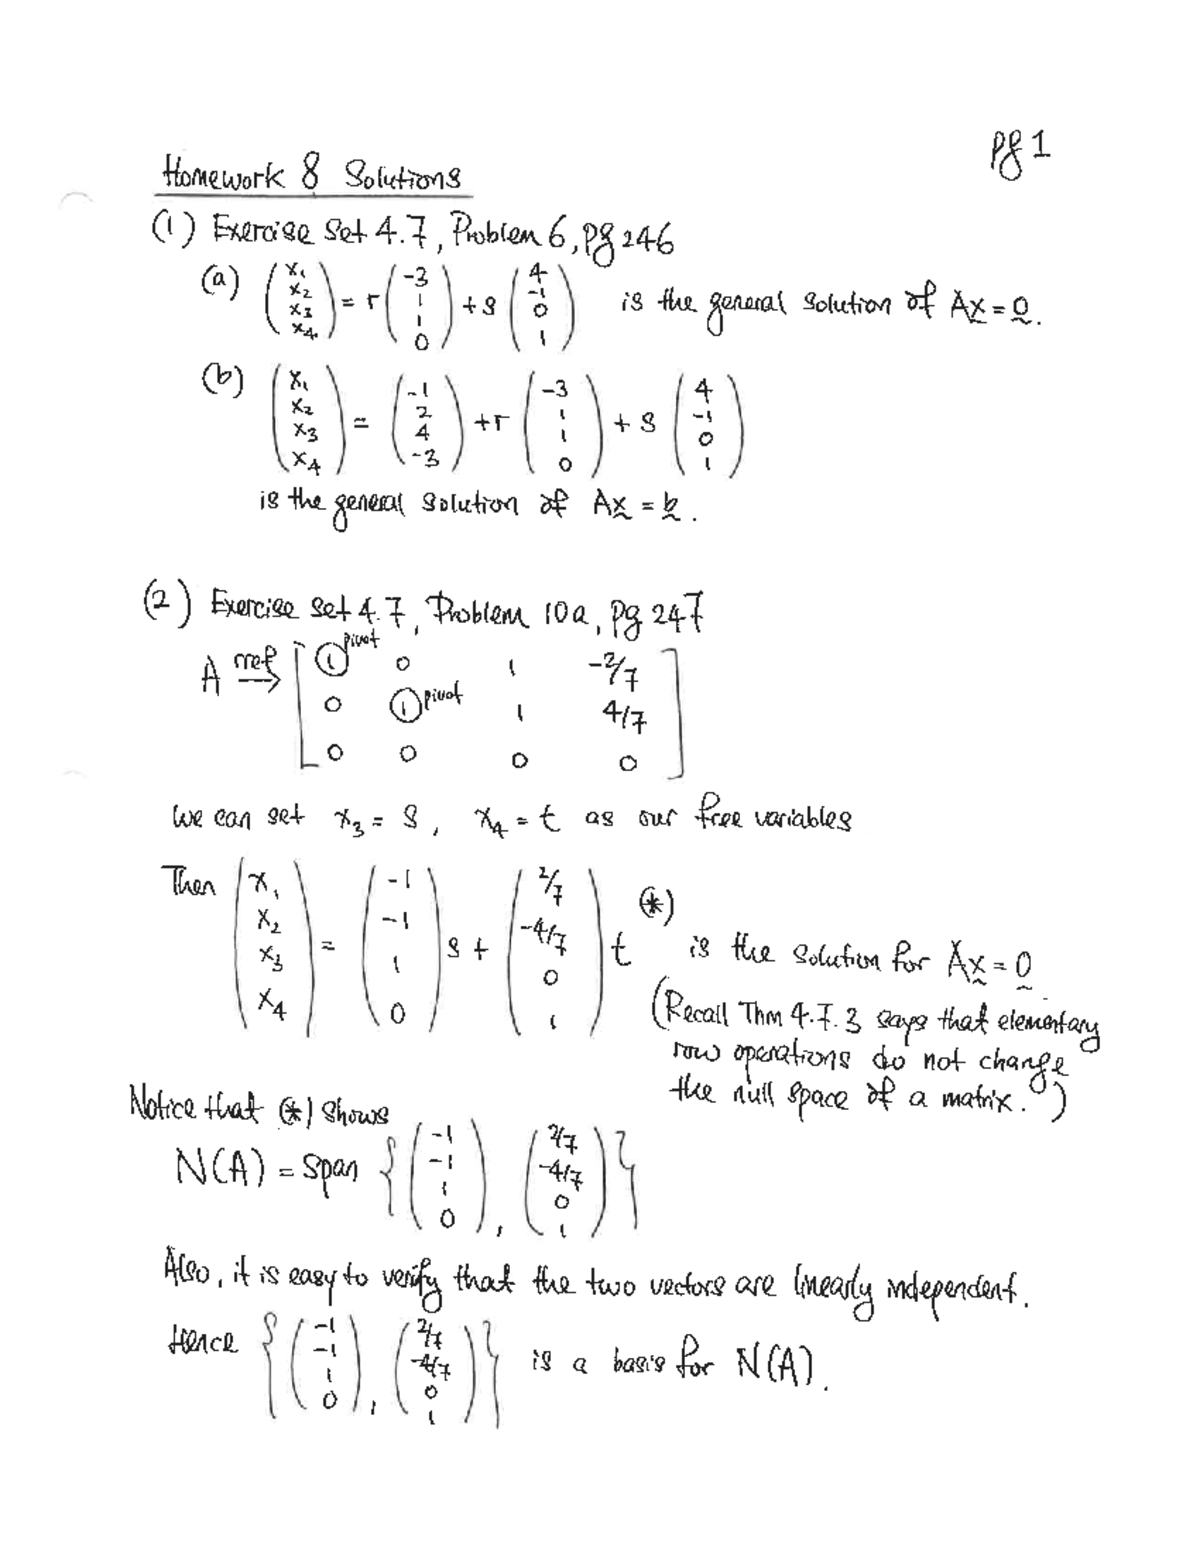 pg 1
Homework 8 Solutions
(1) Exercise Set 4.7, Problem 6, pg 246
(a) (x₁ x₂ x₃ x₄) = r (-3 1 1 0) + s (4 -1 0 1) is the general solution of Ax = 0.
(b) (x₁ x₂ x₃ x₄) = (-1 2 4 -3) + r (-3 1 1 0) + s (4 -1 0 1)
is the general solution of Ax = b.
(2) Exercise Set 4.7, Problem 10a, pg 247
A rref→ [ ① pivot 0 1 -2/7
0 ① pivot 1 4/7
0 0 0 0 ]
We can set x₃ = s, x₄ = t as our free variables
Then (x₁ x₂ x₃ x₄) = (-1 -1 1 0) s + (2/7 -4/7 0 1) t (*) is the solution for Ax = 0
(Recall Thm 4.7.3 says that elementary
row operations do not change
the null space of a matrix.)
Notice that (*) shows
N(A) = span { (-1 -1 1 0), (2/7 -4/7 0 1) }
Also, it is easy to verify that the two vectors are linearly independent.
Hence { (-1 -1 1 0), (2/7 -4/7 0 1) } is a basis for N(A).